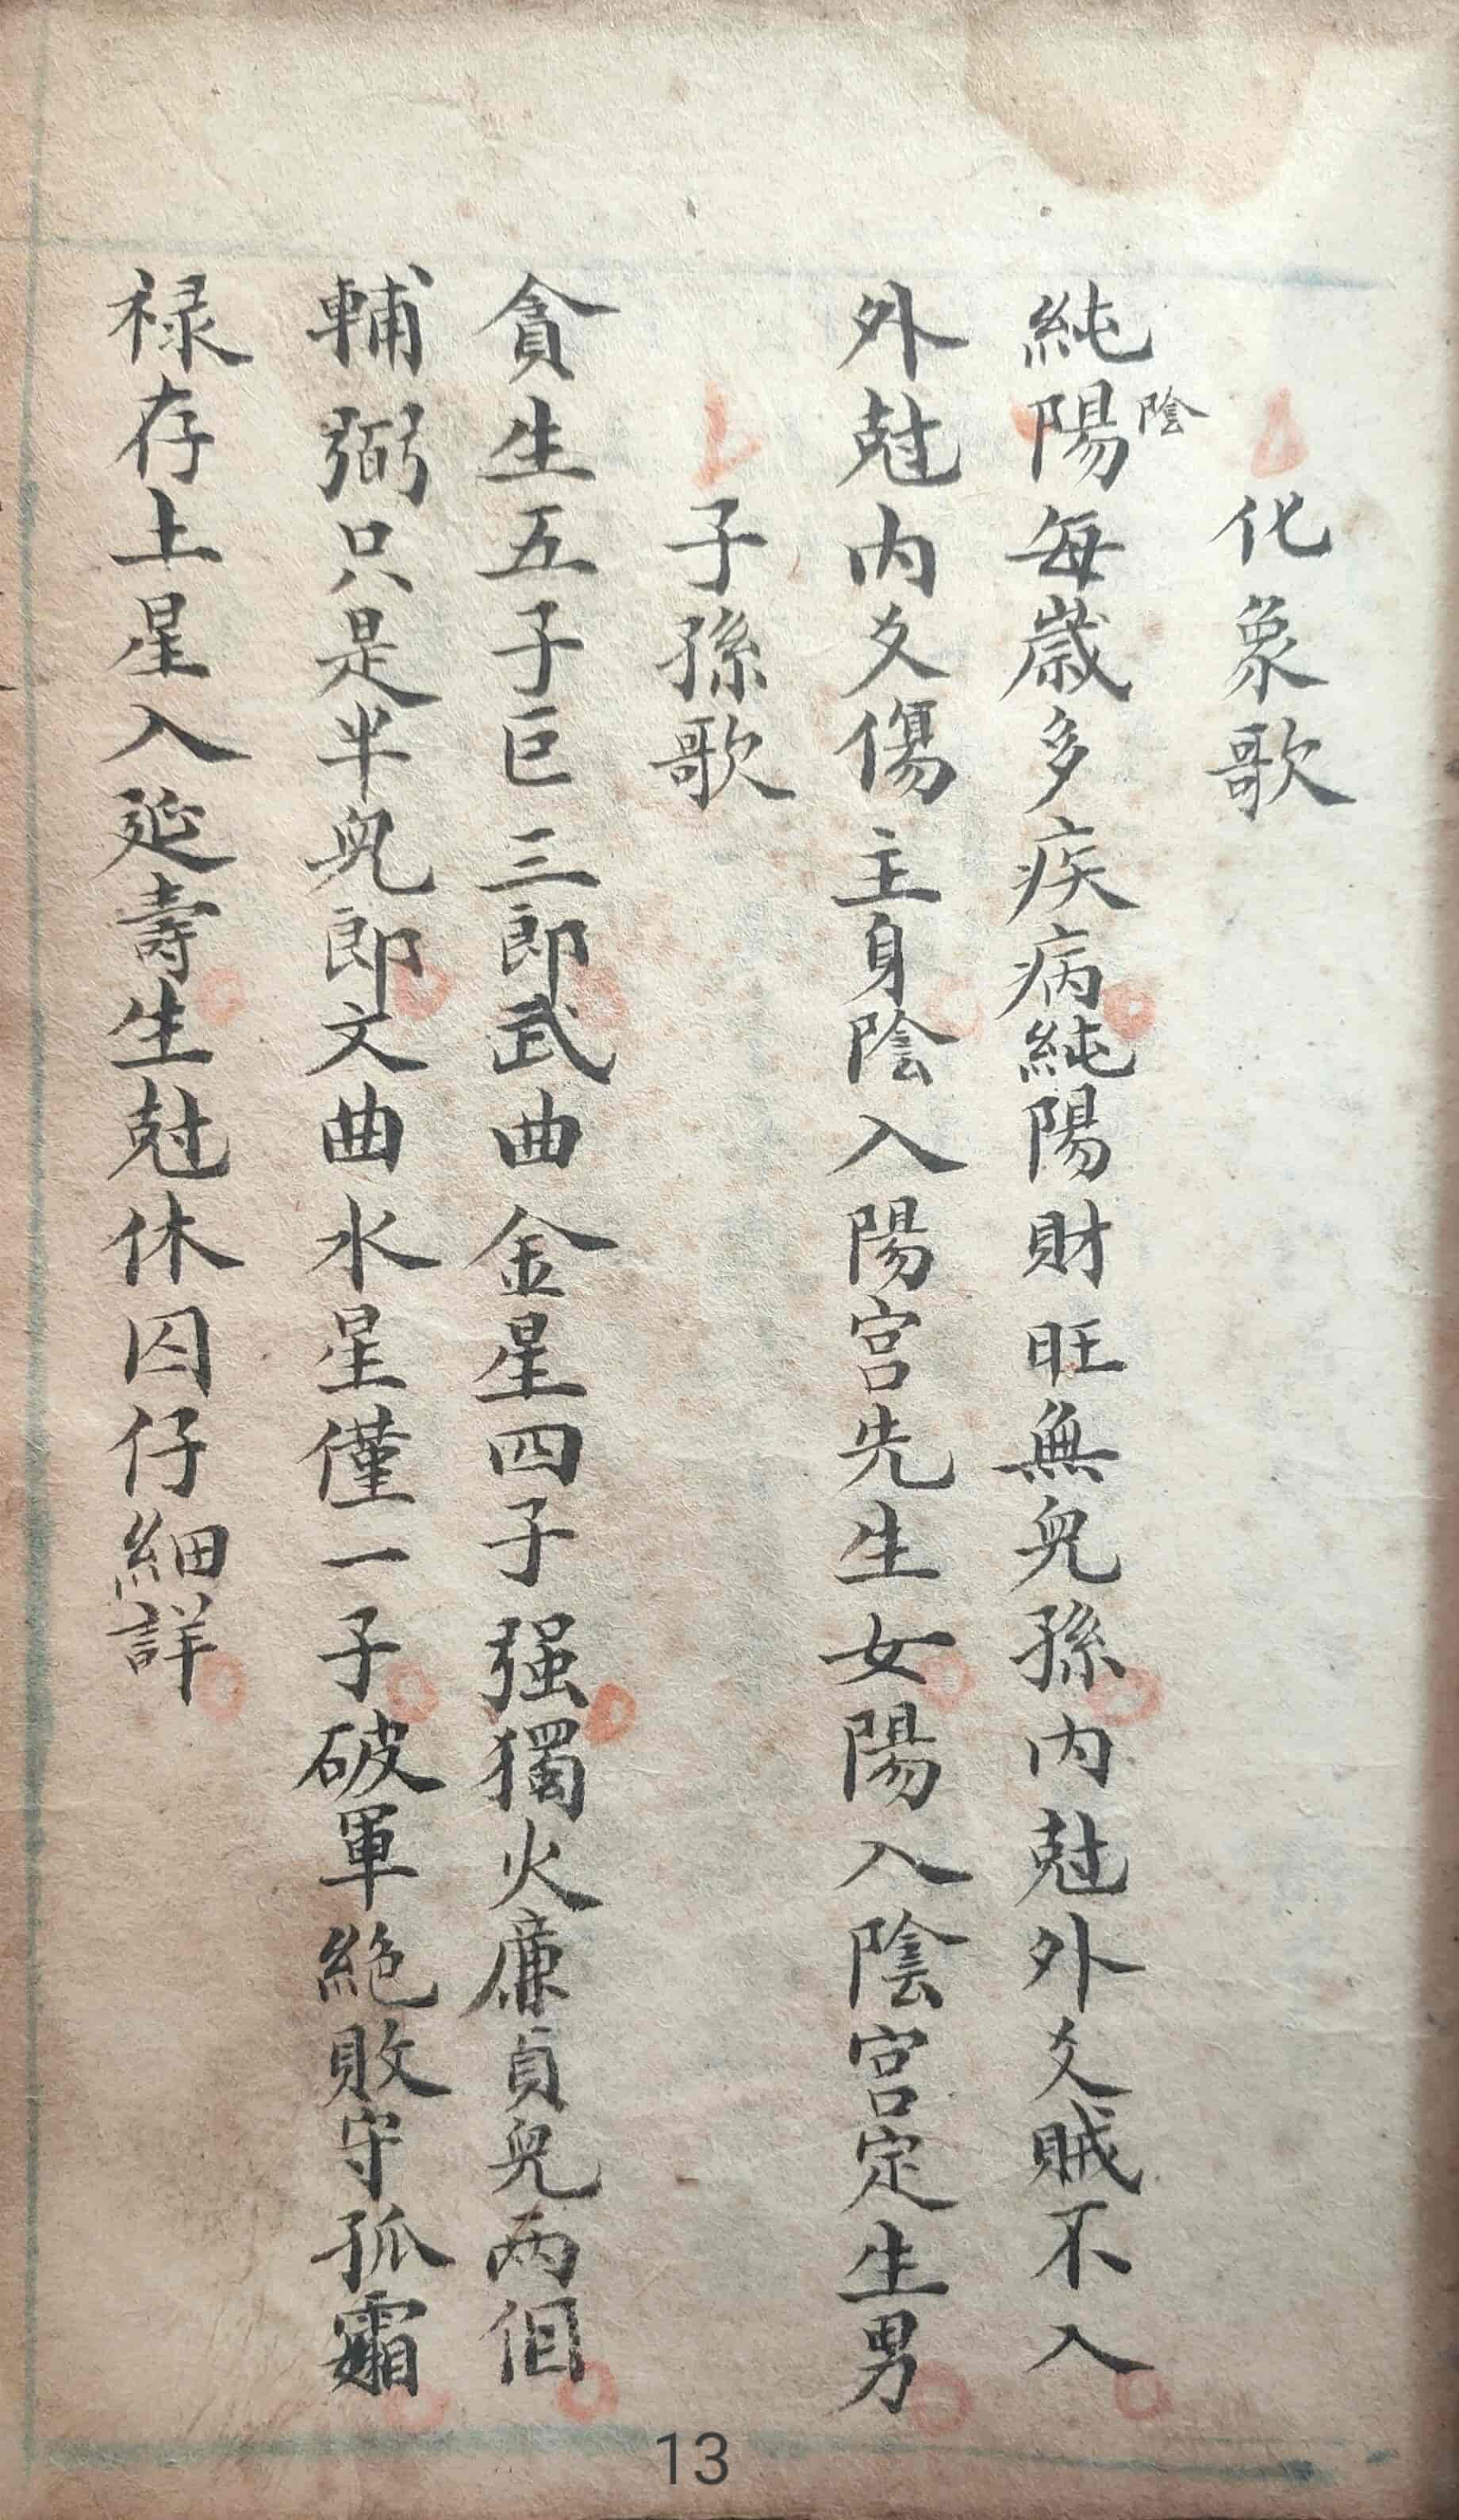 化象歌
純陽陰每歲多疾病純陽財旺無兒孫內尅外爻賊不入
外尅內爻傷主身陰入陽宮先生女陽入陰宮定生男
子孫歌
貪生五子巨三郎武曲金星四子强獨火廉貞兒兩個
輔弼只是半兒郎文曲水星僅一子破軍絕敗守孤孀
禄存土星入延壽生尅休囚仔細詳
13